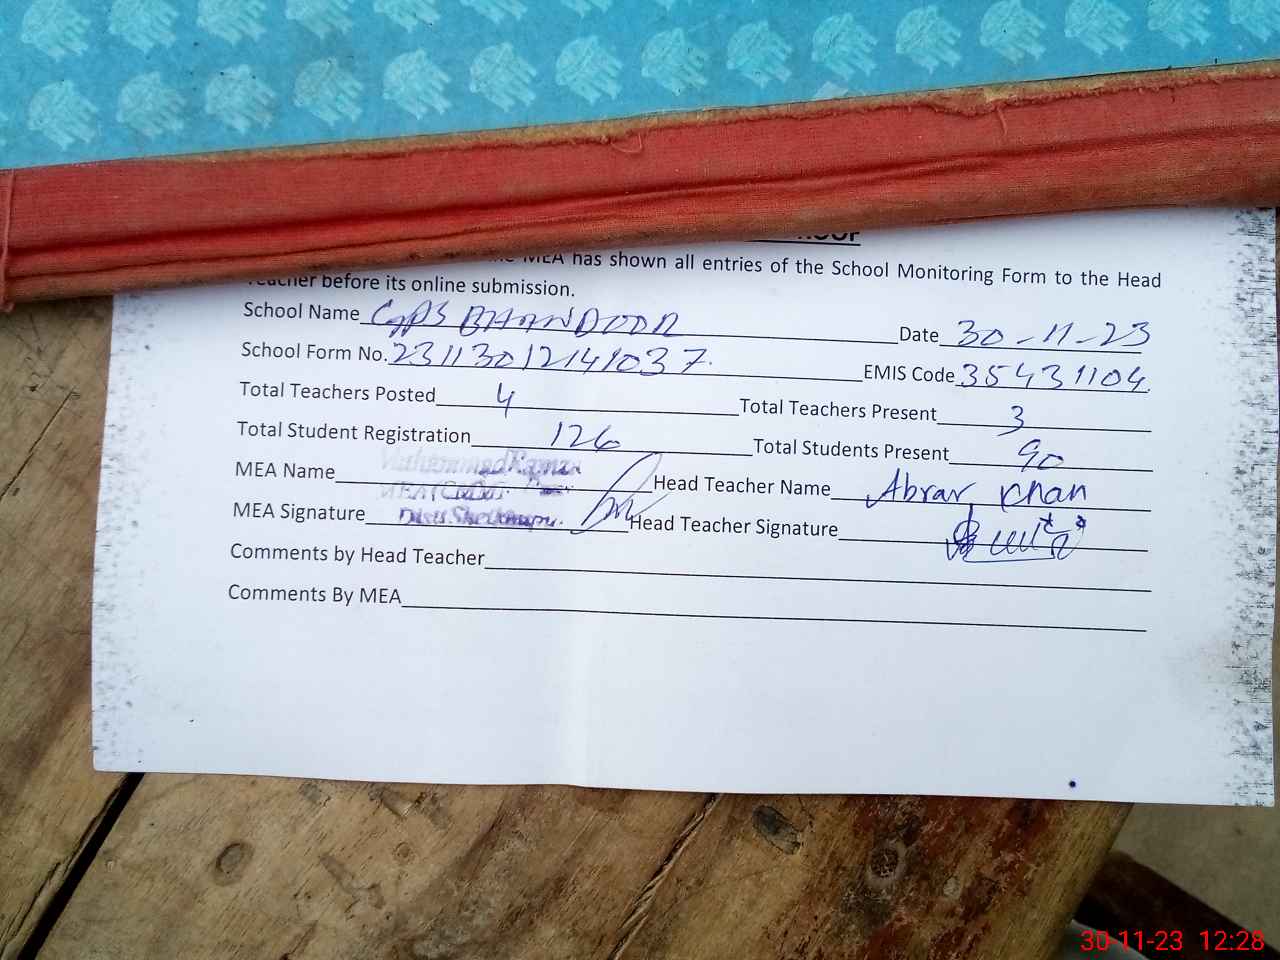 MEA has shown all entries of the School Monitoring Form to the Head
Teacher before its online submission.
School Name GPS BHANDOOR Date 30-11-23
School Form No. 23113012141037. EMIS Code 35431104.
Total Teachers Posted 4 Total Teachers Present 3
Total Student Registration 126 Total Students Present 90
MEA Name Muhammad Head Teacher Name Abrar Khan
MEA Signature Head Teacher Signature
Comments by Head Teacher
Comments By MEA
30-11-23 12:28